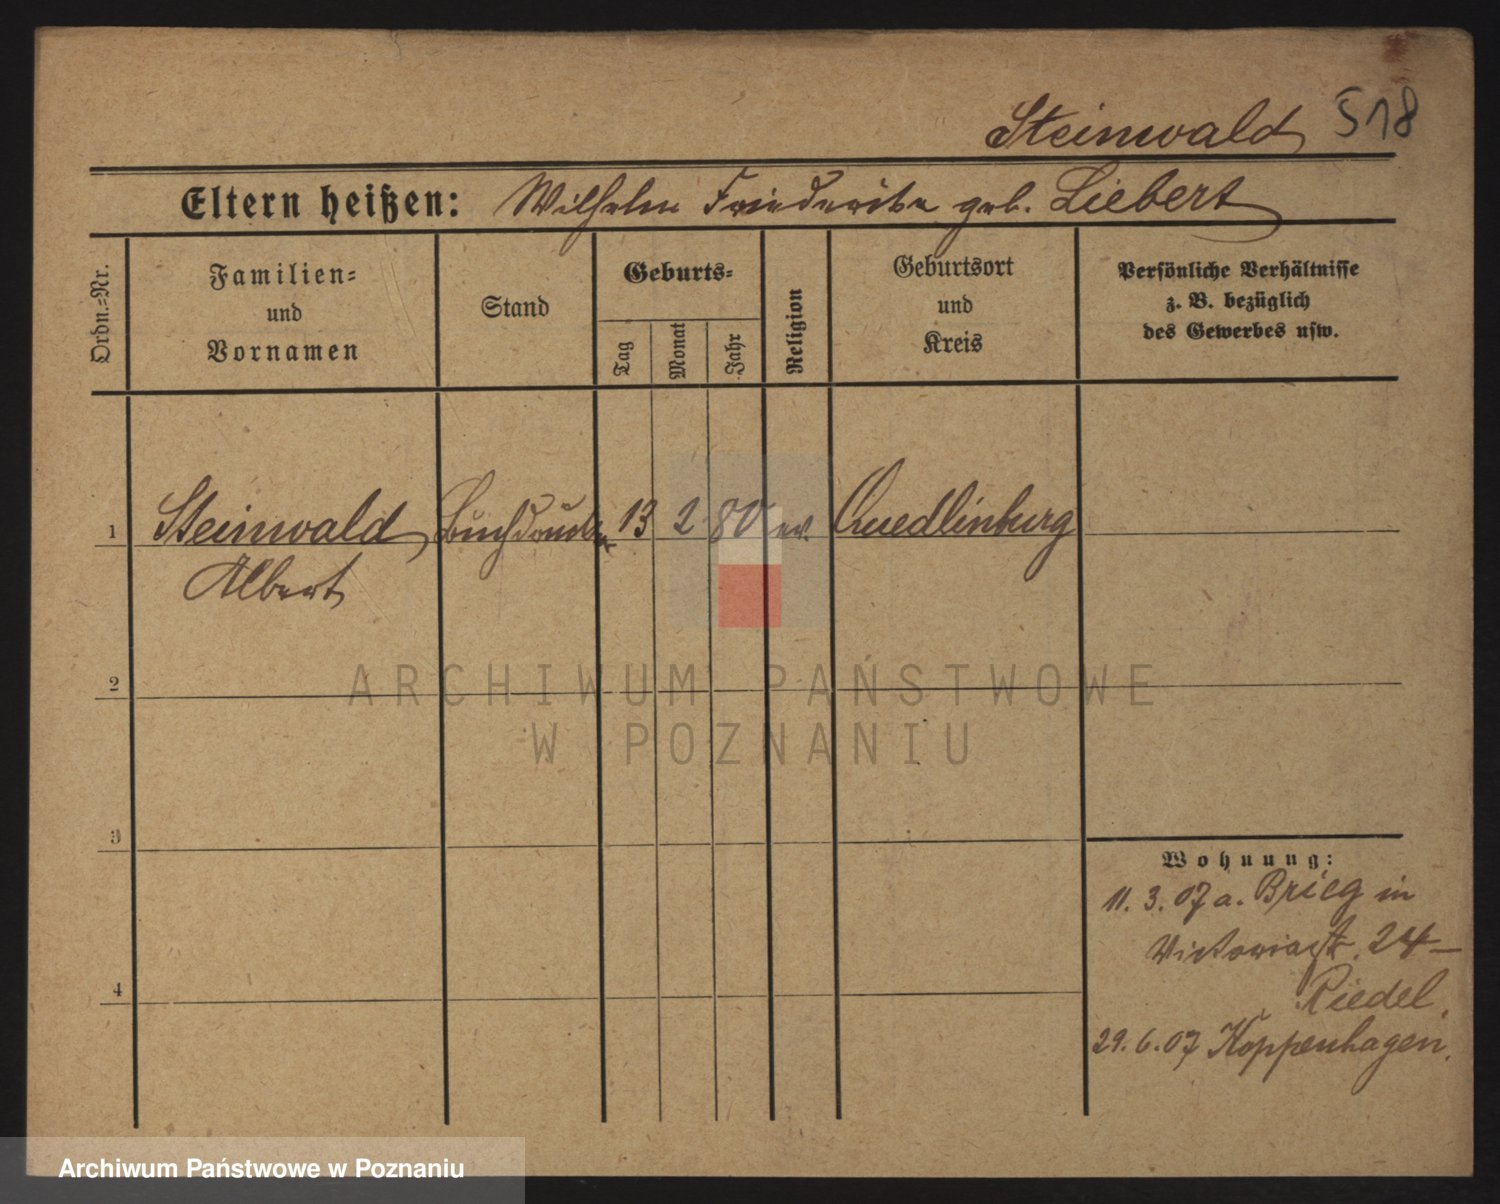 Steinwald 518
Eltern heißen: Wilhelm Friederike geb. Liebert
Ordn.-Nr.
Familien-
und
Vornamen
Stand
Geburts-
Tag
Monat
Jahr
Religion
Geburtsort
und
Kreis
Persönliche Verhältnisse
z. B. bezüglich
des Gewerbes usw.
1 Steinwald Buchdrucker 13 2 80 ev. Quedlinburg
Albert
2
ARCHIWUM PAŃSTWOWE
W POZNANIU
3
Wohnung:
11. 3. 07 a. Brieg in
Victoriastr. 24
Riedel.
4
29. 6. 07 Koppenhagen.
Archiwum Państwowe w Poznaniu